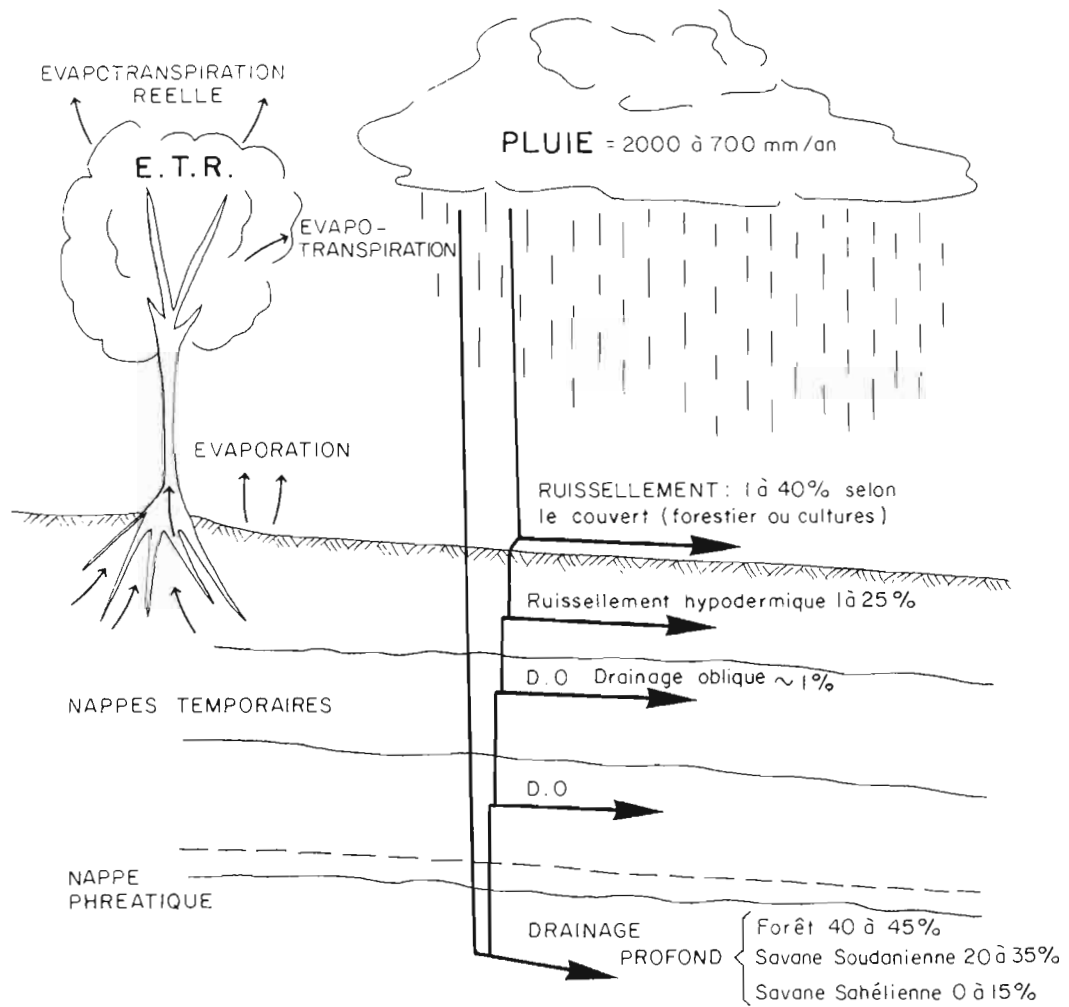 EVAPOTRANSPIRATION
REELLE
E.T.R.
PLUIE = 2000 à 700 mm/an
EVAPO-
TRANSPIRATION
EVAPORATION
RUISSELLEMENT : 1 à 40% selon
le couvert (forestier ou cultures)
Ruissellement hypodermique 1 à 25%
D.O Drainage oblique ~ 1%
NAPPES TEMPORAIRES
D.O
NAPPE
PHREATIQUE
DRAINAGE
PROFOND
Forêt 40 à 45%
Savane Soudanienne 20 à 35%
Savane Sahélienne 0 à 15%